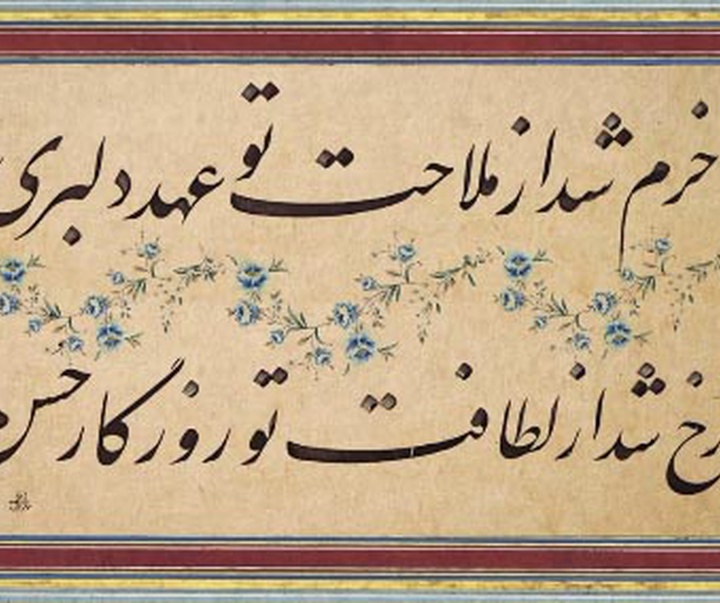 خرم شد از ملاحت تو عهد دلبری
رخ شد از لطافت تو روزگار حسن